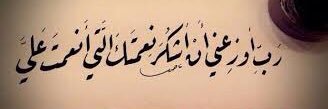 رَبِّ أَوْزِعْنِي أَنْ أَشْكُرَ نِعْمَتَكَ الَّتِي أَنْعَمْتَ عَلَيَّ